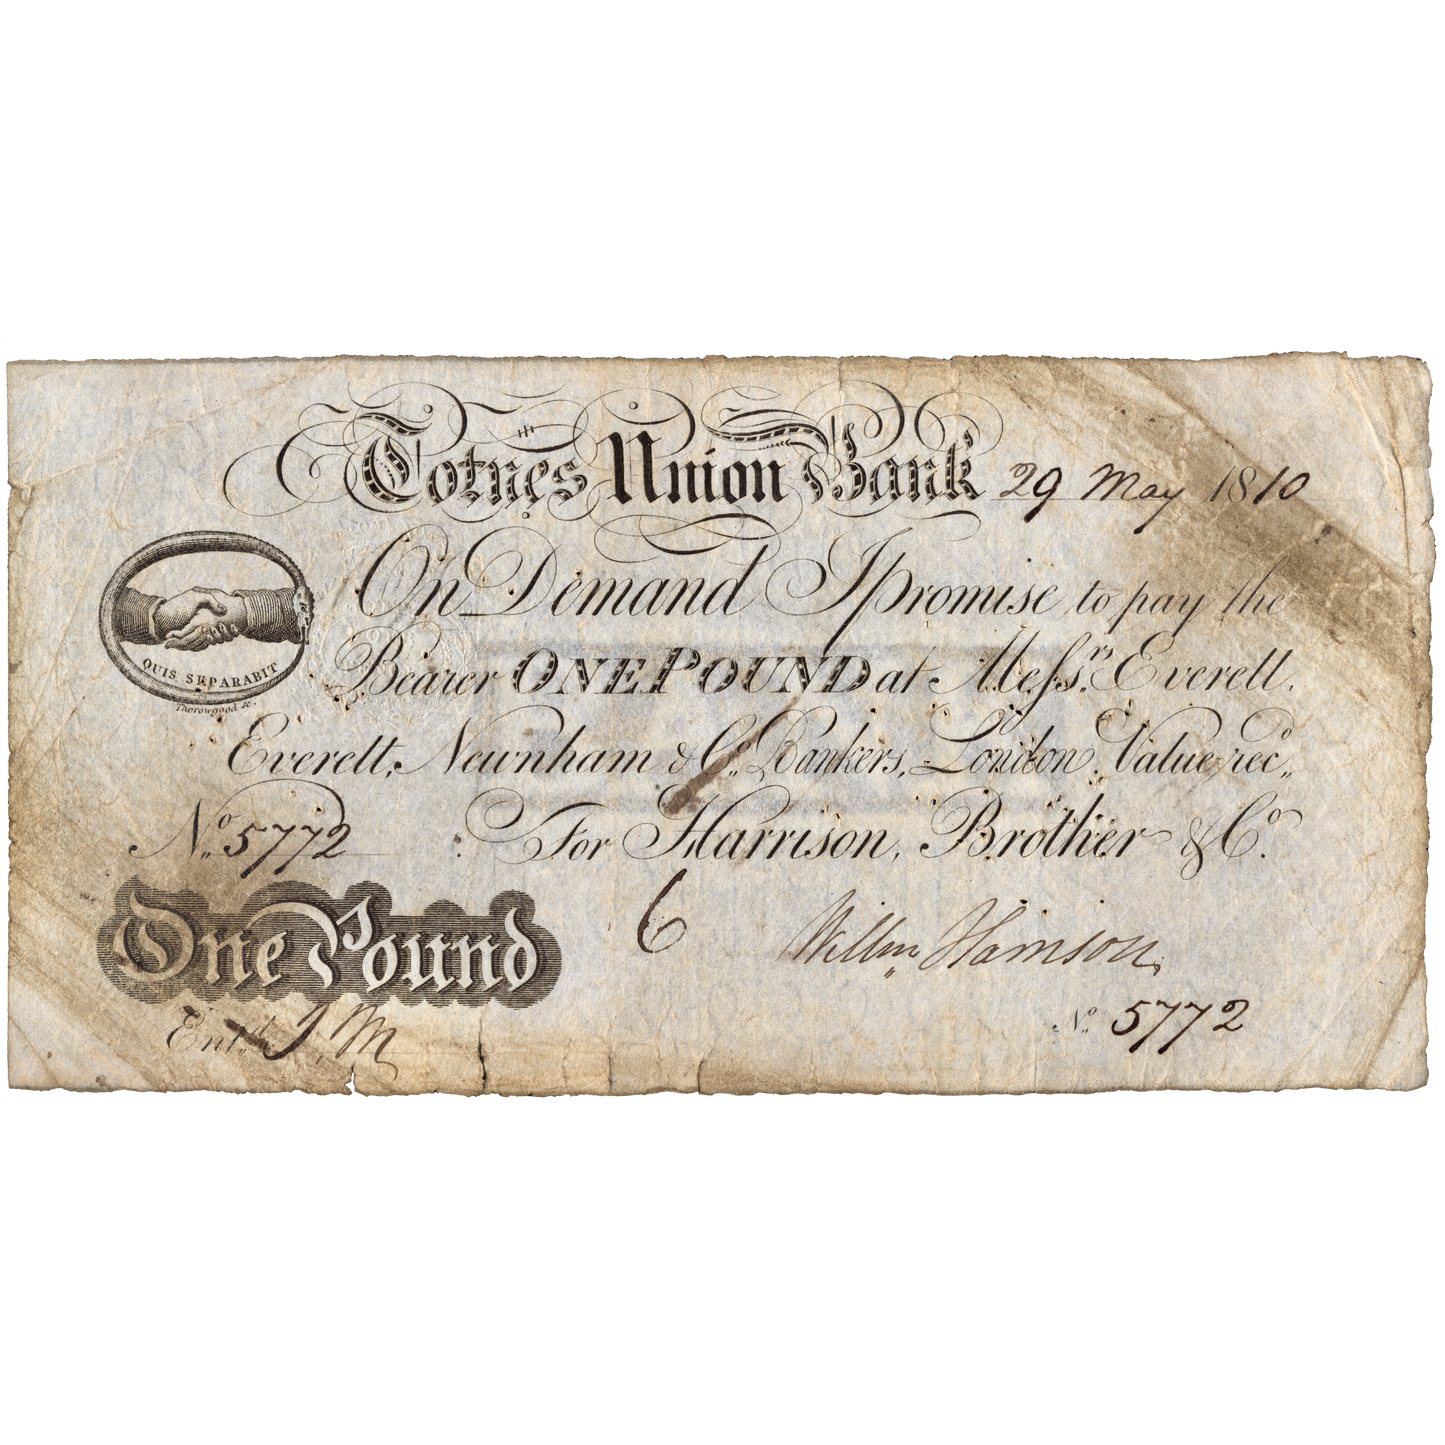 Totnes Union Bank 29 May 1810
On Demand I promise to pay the
QUIS SEPARABIT
Thorowgood sc.
Bearer ONE POUND at Messrs. Everett,
Everett, Newnham & Co. Bankers, London, Value recd.
No. 5772 For Harrison, Brother & Co.
6
One Pound
Willm. Harrison
No. 5772
Entd. J. M